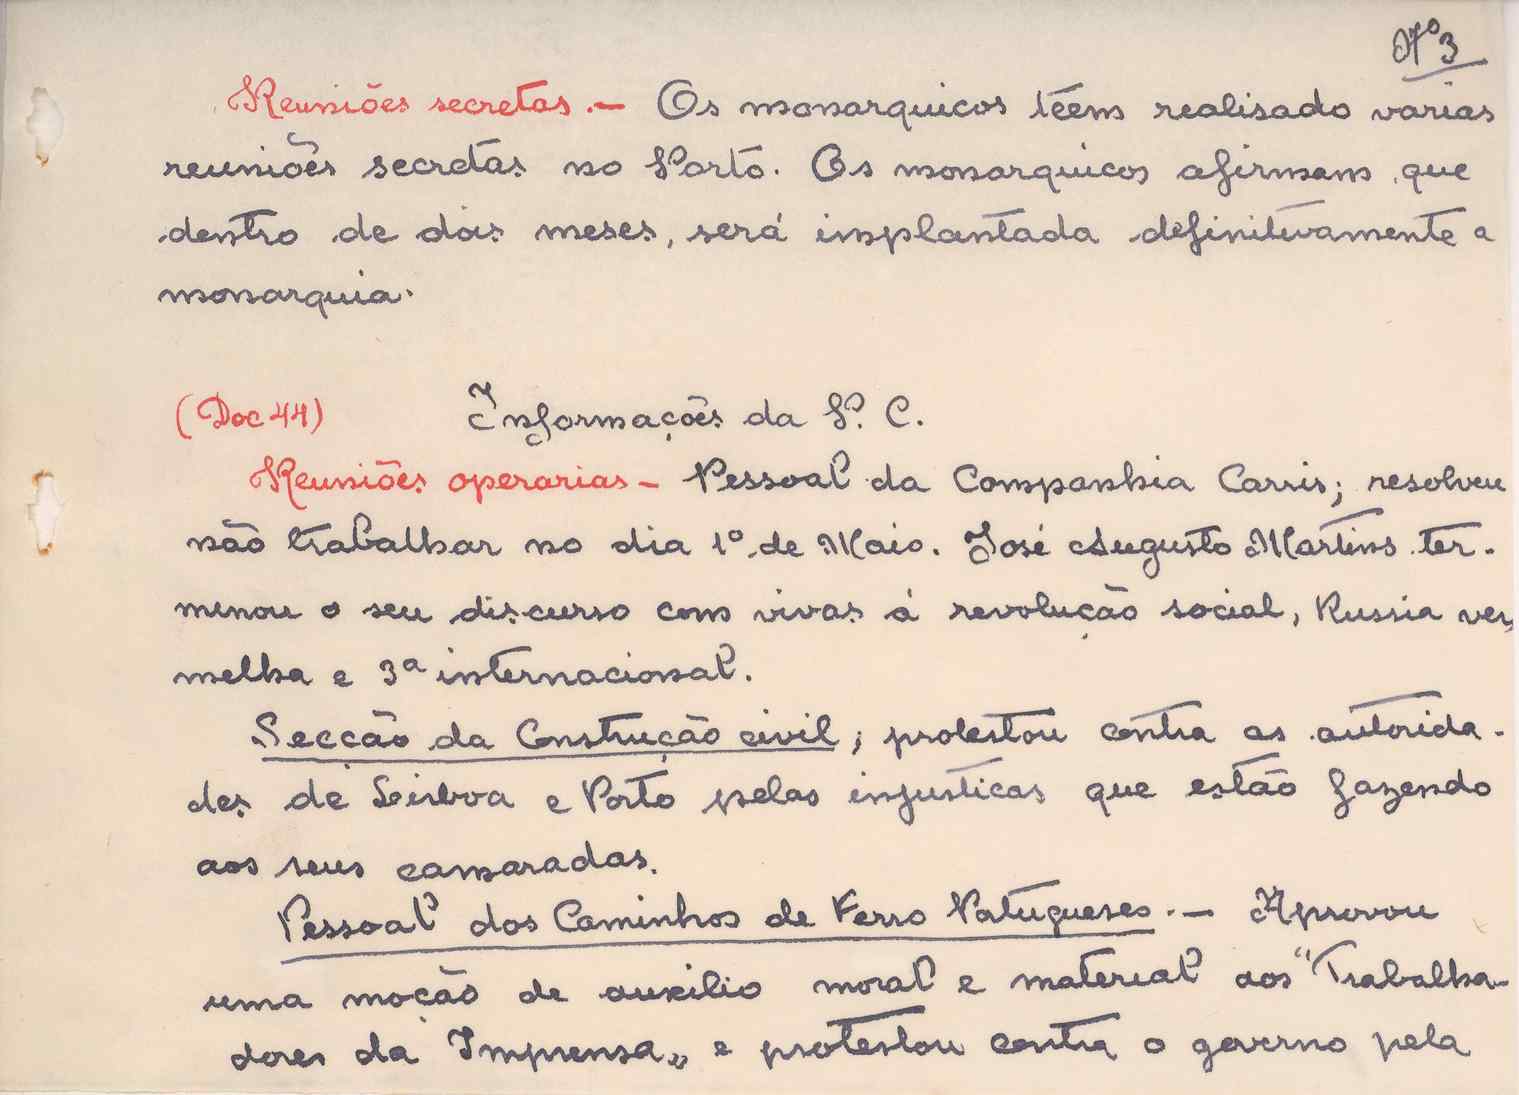 Nº 3
Reuniões secretas.— Os monarquicos téem realisado varias
reuniões secretas no Porto. Os monarquicos afirmam que
dentro de dois meses, será implantada definitivamente a
monarquia.
(Doc 44) Informações da P. C.
Reuniões operarias — Pessoal da Companhia Carris; resolveu
não trabalhar no dia 1º de Maio. José Augusto Martins ter-
minou o seu discurso com vivas á revolução social, Russia ver
melha e 3ª internacional.
Secção da Construção civil; protestou contra as autorida-
des de Lisboa e Porto pelas injusticas que estão fazendo
aos seus camaradas.
Pessoal dos Caminhos de Ferro Portugueses.— Aprovou
uma moção de auxilio moral e material aos "Trabalha-
dores da Imprensa„ e protestou contra o governo pela